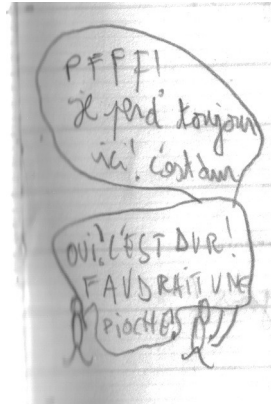 PFFF!
je perd toujours
ici! c'est dur
OUI! C'EST DUR!
FAUDRAIT UNE
PIOCHE!